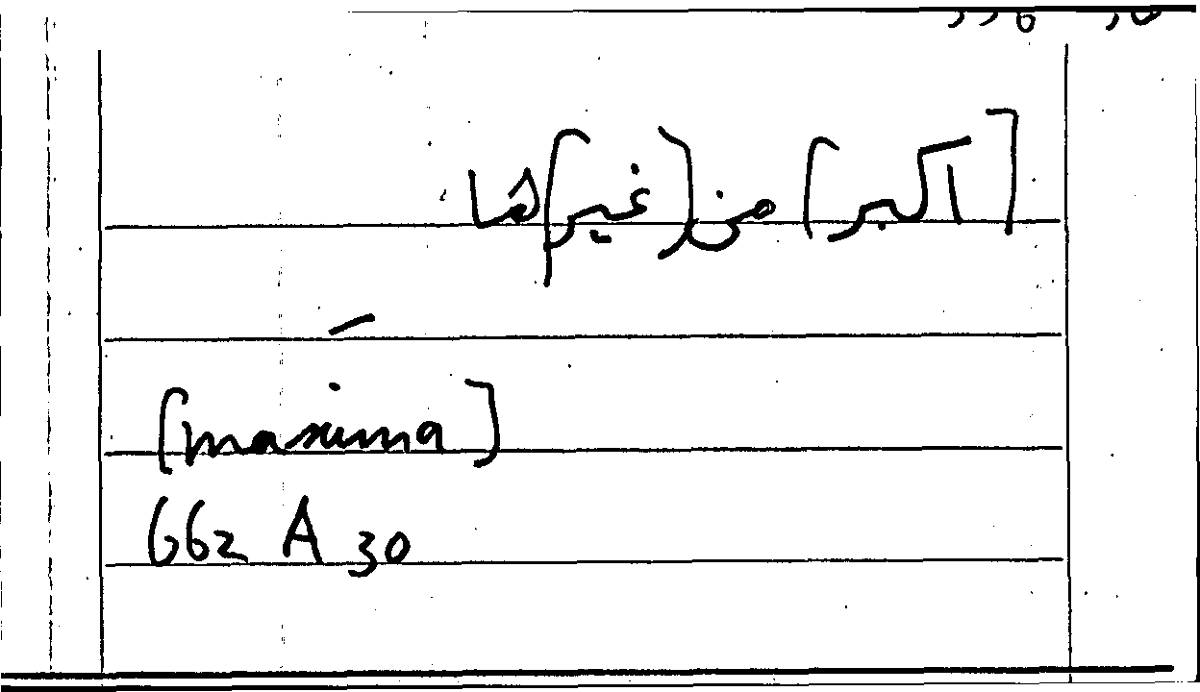 [اكبر] من [غير]ها
[maxima]
662 A 30